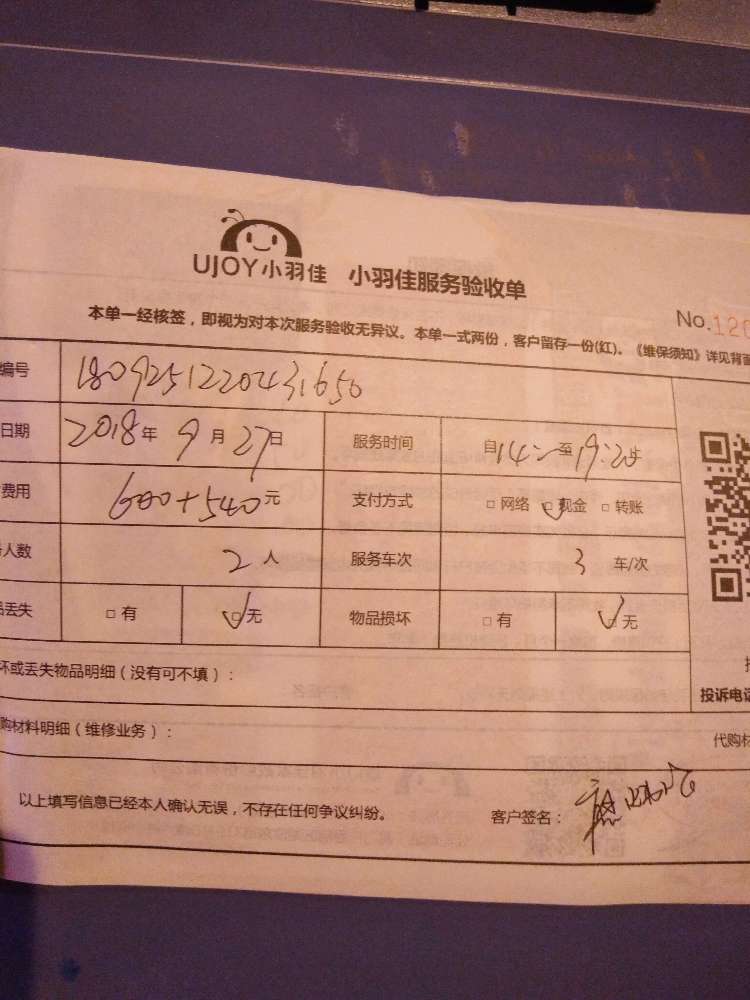 UJOY小羽佳 小羽佳服务验收单
No.120
本单一经核签，即视为对本次服务验收无异议。本单一式两份，客户留存一份(红)。《维保须知》详见背面
编号 180925122043165
日期 2018年9月27日 服务时间 自14:至19:20
费用 600+540元 支付方式 □网络 □现金 □转账
人数 2人 服务车次 3车/次
品丢失 □有 □无 物品损坏 □有 □无
坏或丢失物品明细（没有可不填）：
投诉电话
购材料明细（维修业务）：
代购材
以上填写信息已经本人确认无误，不存在任何争议纠纷。 客户签名：